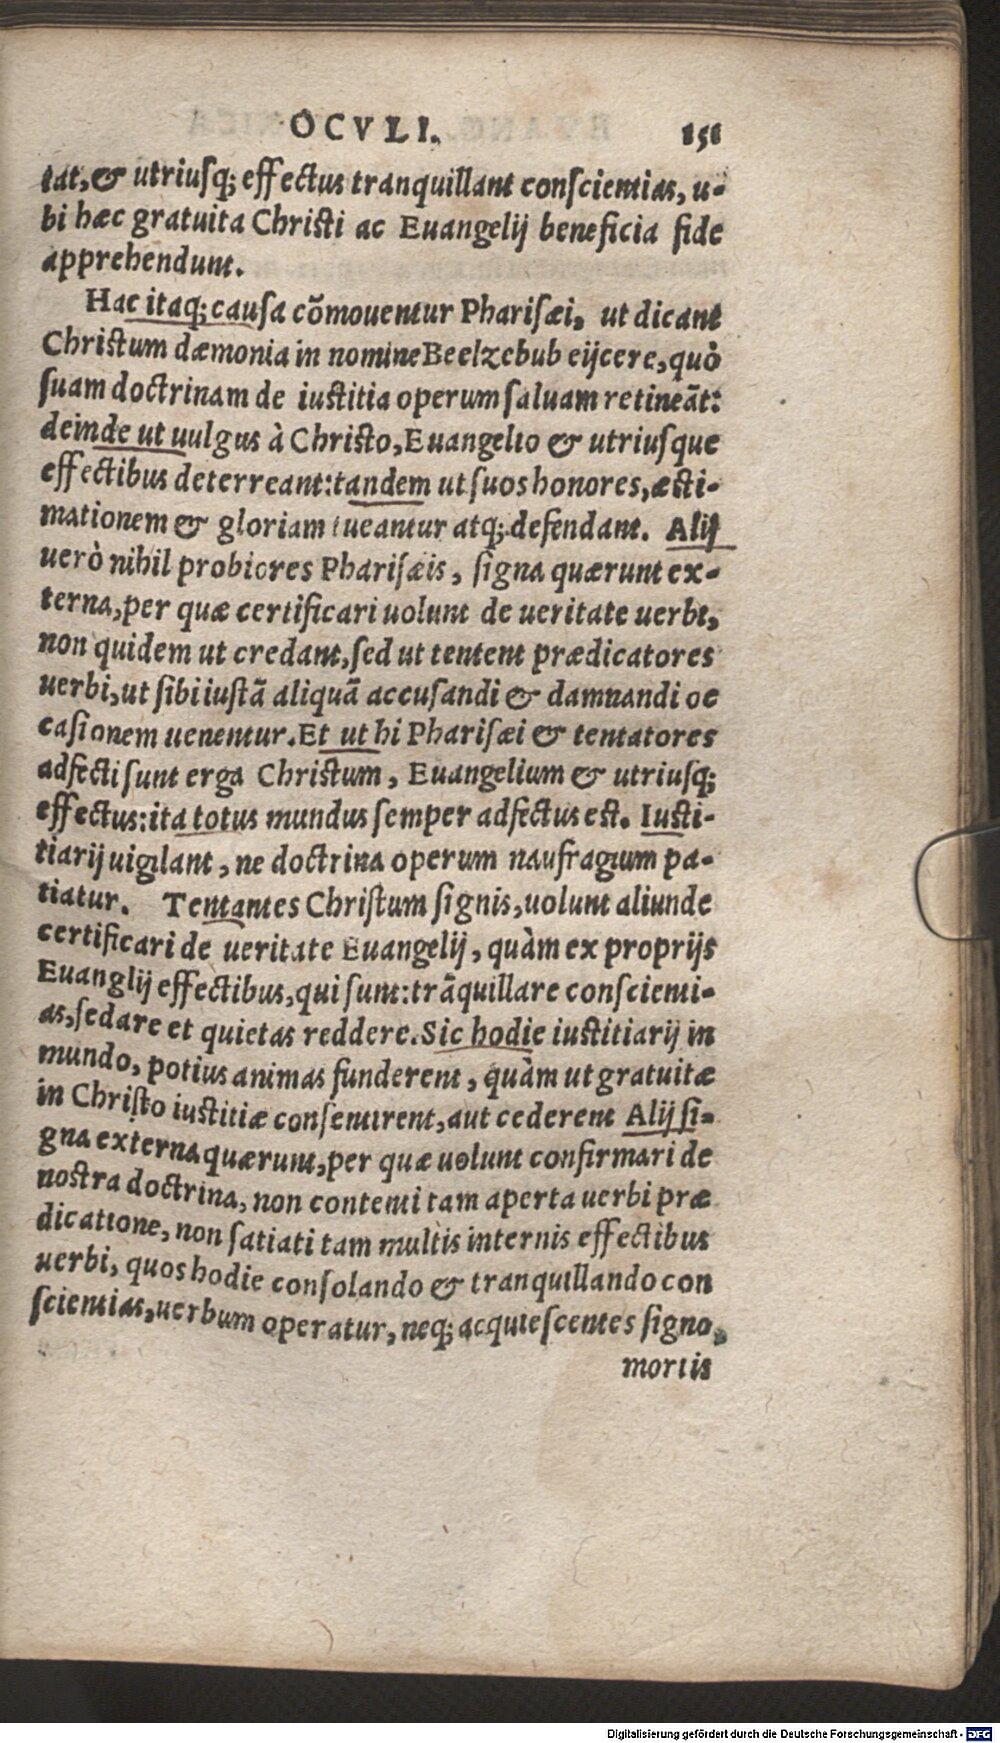 OCVLI. 151
tat, & utriusq; effectus tranquillant conscientias, u-
bi hæc gratuita Christi ac Euangelij beneficia fide
apprehendunt.
Hac itaq; causa cõmouentur Pharisæi, ut dicant
Christum dæmonia in nomine Beelzebub eijcere, quò
suam doctrinam de iustitia operum saluam retineãt:
deinde ut uulgus à Christo, Euangelio & utriusque
effectibus deterreant: tandem ut suos honores, æsti-
mationem & gloriam tueantur atq; defendant. Alij
uerò nihil probiores Pharisæis, signa quærunt ex-
terna, per quæ certificari uolunt de ueritate uerbi,
non quidem ut credant, sed ut tentent prædicatores
uerbi, ut sibi iustã aliquã accusandi & damnandi oc
casionem uenentur. Et ut hi Pharisæi & tentatores
adfecti sunt erga Christum, Euangelium & utriusq;
effectus: ita totus mundus semper adfectus est. Iusti-
tiarij uigilant, ne doctrina operum naufragium pa-
tiatur. Tentantes Christum signis, uolunt aliunde
certificari de ueritate Euangelij, quàm ex proprijs
Euanglij effectibus, qui sunt: trãquillare conscienti-
as, sedare et quietas reddere. Sic hodie iustitiarij in
mundo, potius animas funderent, quàm ut gratuitæ
in Christo iustitiæ consentirent, aut cederent Alij si-
gna externa quærunt, per quæ uolunt confirmari de
nostra doctrina, non contenti tam aperta uerbi præ
dicatione, non satiati tam multis internis effectibus
uerbi, quos hodie consolando & tranquillando con
scientias, uerbum operatur, neq; acquiescentes signo
mortis
Digitalisierung gefördert durch die Deutsche Forschungsgemeinschaft - DFG